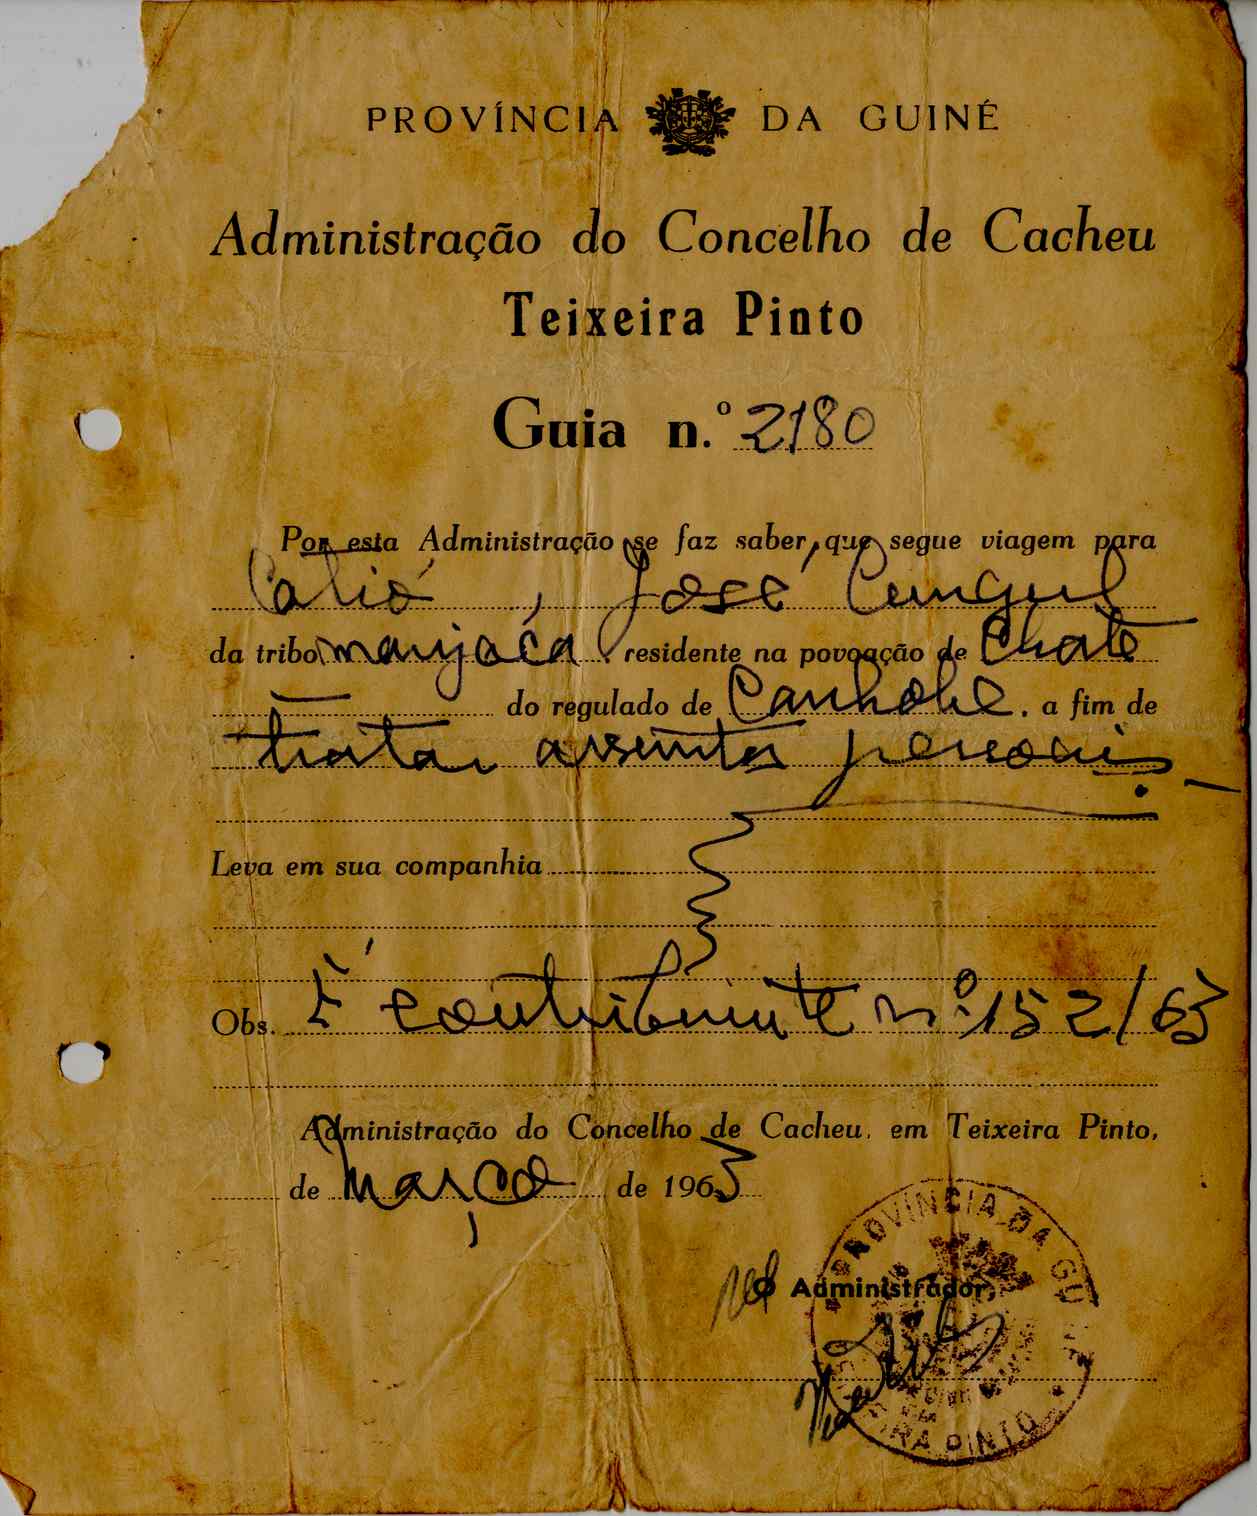 PROVÍNCIA DA GUINÉ
Administração do Concelho de Cacheu
Teixeira Pinto
Guia n.º 2180
Por esta Administração se faz saber, que segue viagem para
Catió, José
da tribo manjaca residente na povoação de
do regulado de Canhobe. a fim de
tratar assuntos pessoais.-
Leva em sua companhia
Obs. É contribuinte nº 152/63
Administração do Concelho de Cacheu, em Teixeira Pinto,
de Março de 1963
O Administrador,
PROVÍNCIA DA GU
PINTO